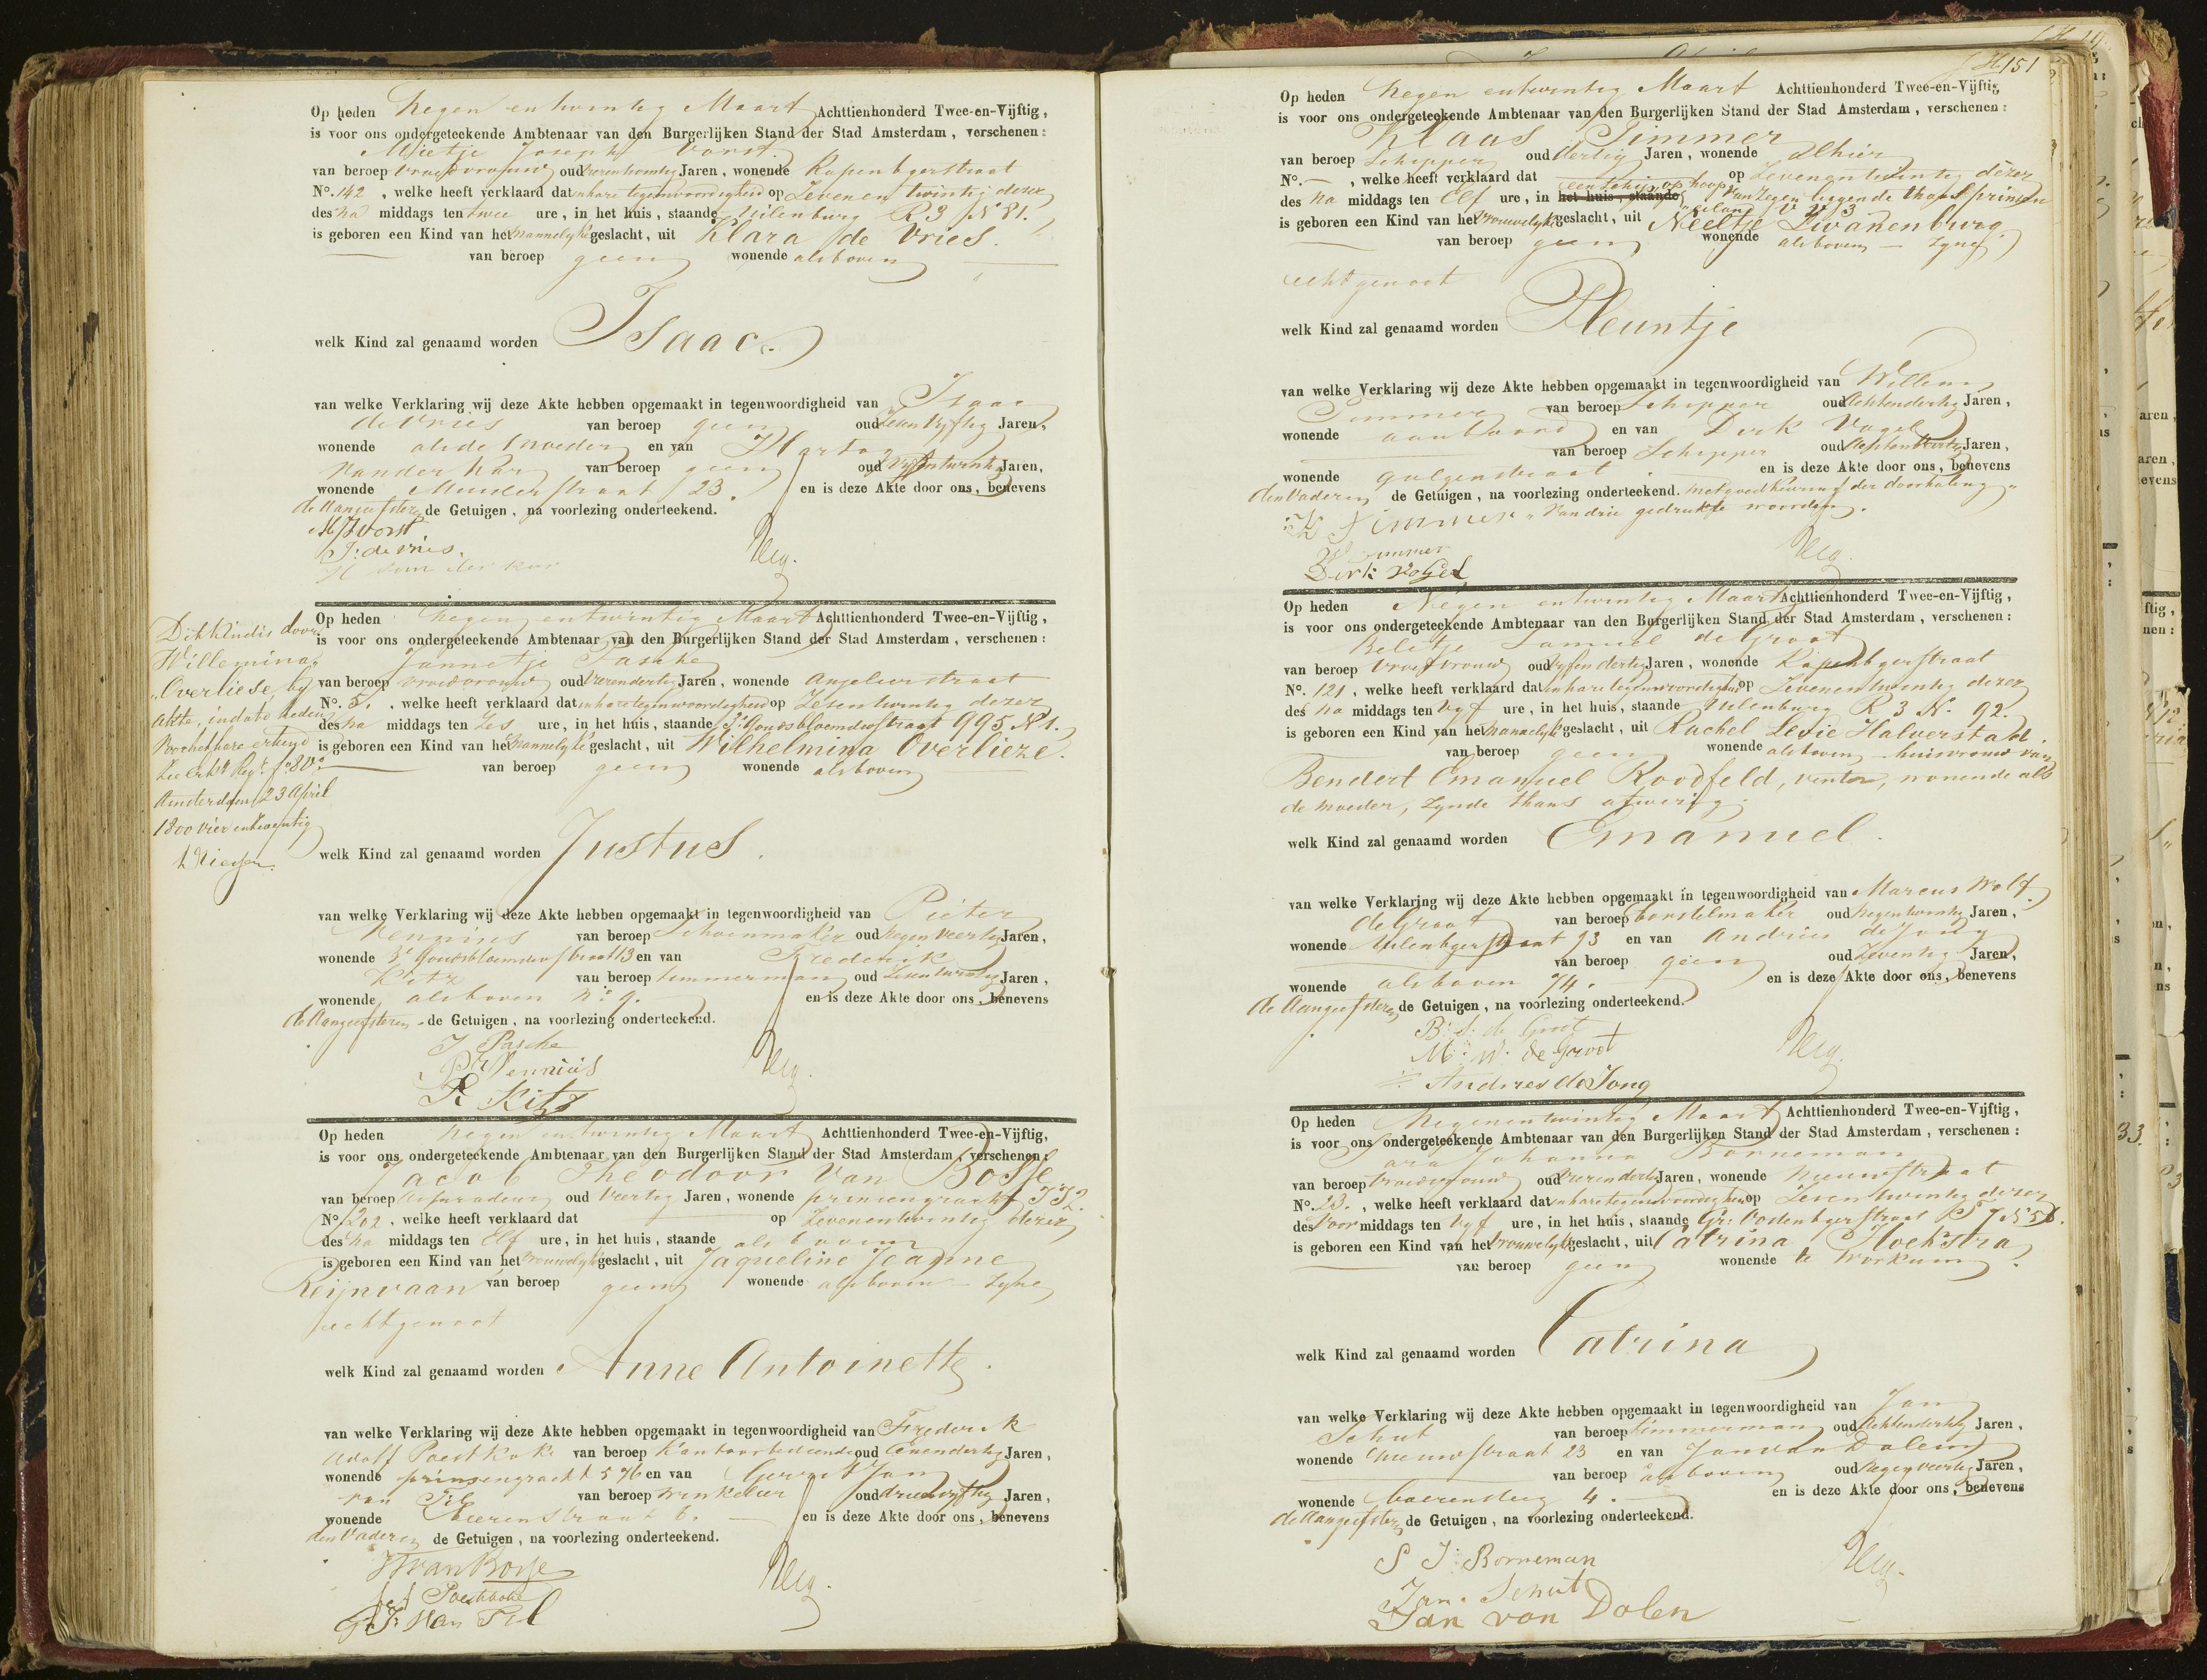 Op heden Negen en twintig Maart Achttienhonderd Twee-en-Vijftig,
is voor ons ondergeteekende Ambtenaar van den Burgerlijken Stand der Stad Amsterdam, verschenen:
Mietje Joseph Vorst
van beroep vroedvrouw oud Jaren, wonende Rapenbgerstraat
No. 142, welke heeft verklaard dat in hare tegenwoordigheid op Zevenen twintig dezer
des na middags ten twee ure, in het huis, staande Uilenburg R 3 No 81.
is geboren een Kind van het mannelyke geslacht, uit Klara de Vries.
van beroep geen wonende als boven
welk Kind zal genaamd worden Isaac.
van welke Verklaring wij deze Akte hebben opgemaakt in tegenwoordigheid van Isaac
de Vries van beroep geen oud Jaren,
wonende als de Moeder en van Hartog
van der Kar van beroep geen oud vyfentwintig Jaren,
wonende Muiderstraat 23. en is deze Akte door ons, benevens
de Aangeefster de Getuigen, na voorlezing onderteekend.
M J Vorst
J: de Vries.
H van der kar
Dit Kind is door
Willemina
Overliese, by
akte, in dato heden
voor het hare erkend
Zie erkg Regr fo 8 vo
Amsterdam 23 April
1800 vier en
Op heden Negen entwintig Maart Achttienhonderd Twee-en-Vijftig,
is voor ons ondergeteekende Ambtenaar van den Burgerlijken Stand der Stad Amsterdam, verschenen:
Jannetje Pasche
van beroep vroedvrouw oud vierendertig Jaren, wonende Anjelierstraat
No. 5., welke heeft verklaard dat in hare tegenwoordigheid op Zesentwintig dezer
des na middags ten Zes ure, in het huis, staande 3e Goudsbloemdwstraat 995 No 1.
is geboren een Kind van het mannelyke geslacht, uit Wilhelmina Overlieze.
van beroep geen wonende alsboven
welk Kind zal genaamd worden Justus.
van welke Verklaring wij deze Akte hebben opgemaakt in tegenwoordigheid van Pieter
Kennius van beroep Schoenmaker oud Negenveertig Jaren,
wonende 3e Goudsbloemdwstraat 13 en van Frederik
Kitz van beroep timmerman oud Jaren,
wonende als boven No 9. en is deze Akte door ons, benevens
de Aangeefster de Getuigen, na voorlezing onderteekend.
J Pasche
P Kennius
F Kitz
Op heden Negen entwintig Maart Achttienhonderd Twee-en-Vijftig,
is voor ons ondergeteekende Ambtenaar van den Burgerlijken Stand der Stad Amsterdam, verschenen:
Jacob Theodoor van Bosse
van beroep Assuradeur oud Veertig Jaren, wonende prinsengracht JJ2.
No. 202, welke heeft verklaard dat op Zevenentwintig dezer
des Na middags ten Elf ure, in het huis, staande als boven
is geboren een Kind van het vrouwelyk geslacht, uit Jaqueline Jeanne
Reijnvaan van beroep geen wonende als boven - Zyne
echtgenoot
welk Kind zal genaamd worden Anne Antoinette.
van welke Verklaring wij deze Akte hebben opgemaakt in tegenwoordigheid van Frederik
Adolf Poestkoke van beroep Kantoorbediende oud Eenendertig Jaren,
wonende prinsengracht 596 en van Gerrit Jan
van Pel van beroep winkelier oud drieenvyftig Jaren,
wonende beerenstraat 6. en is deze Akte door ons, benevens
den Vader de Getuigen, na voorlezing onderteekend.
JT van Bosse
Poestkoke
G: J: Van Pel
151
Op heden Negen entwintig Maart Achttienhonderd Twee-en-Vijftig,
is voor ons ondergeteekende Ambtenaar van den Burgerlijken Stand der Stad Amsterdam, verschenen:
Klaas Timmer
van beroep Schipper oud dertig Jaren, wonende Alhier
No. —, welke heeft verklaard dat op Zevenentwintig dezer
des Na middags ten Elf ure, in het huis, staande een Schip, op hoop van Zegen liggende thans prinsen
eiland V V 3
is geboren een Kind van het Vrouwelyk geslacht, uit Neeltje Zwanenburg.
van beroep geen wonende als boven — Zyne
echtgenoot
welk Kind zal genaamd worden Pleuntje
van welke Verklaring wij deze Akte hebben opgemaakt in tegenwoordigheid van Willem
Timmer van beroep Schipper oud Achtendertig Jaren,
wonende aan boord en van Dirk Vogel
van beroep Schipper oud Jaren,
wonende galgenstraat en is deze Akte door ons, benevens
den Vader de Getuigen, na voorlezing onderteekend. met goedkeuring der doorhaling
K Timmer van drie gedrukte woorden.
W Timmer
Dirk Vogel
Op heden Negen entwintig Maart Achttienhonderd Twee-en-Vijftig,
is voor ons ondergeteekende Ambtenaar van den Burgerlijken Stand der Stad Amsterdam, verschenen:
Beletje Samuel de Groot
van beroep Vroedvrouw oud vyfendertig Jaren, wonende Rapenbgerstraat
No. 121, welke heeft verklaard dat in hare tegenwoordigheid op Zevenentwintig dezer
des Na middags ten Vyf ure, in het huis, staande Uilenburg R 3 No. 92.
is geboren een Kind van het mannelyk geslacht, uit Rachel Levie Halverstad.
van beroep geen wonende als boven huisvrouw van
Bendert Emanuel Roodfeld, venter, wonende als
de moeder, zynde thans afwezig.
welk Kind zal genaamd worden Emanuel.
van welke Verklaring wij deze Akte hebben opgemaakt in tegenwoordigheid van Marcus Wolf
de Groot van beroep borstelmaker oud Jaren,
wonende Uilenbgerstraat 93 en van Andries de Jong
van beroep geen oud Zeventig Jaren,
wonende als boven 74. en is deze Akte door ons, benevens
de Aangeefster de Getuigen, na voorlezing onderteekend.
B: S: de Groot
M: W: de Groot
Andries de Jong
Op heden Negenentwintig Maart Achttienhonderd Twee-en-Vijftig,
is voor ons ondergeteekende Ambtenaar van den Burgerlijken Stand der Stad Amsterdam, verschenen:
Sara Johanna Borneman
van beroep Vroedvrouw oud vierendertig Jaren, wonende Nieuwstraat
No. 23., welke heeft verklaard dat in hare tegenwoordigheid op Zevenentwintig dezer
des Voor middags ten Vyf ure, in het huis, staande Gr: Oostenbgerstraat
is geboren een Kind van het Vrouwelyk geslacht, uit Catrina Hoekstra
van beroep geen wonende te Workum.
welk Kind zal genaamd worden Catrina
van welke Verklaring wij deze Akte hebben opgemaakt in tegenwoordigheid van Jan
Schut van beroep timmerman oud Achtendertig Jaren,
wonende Nieuwstraat 23 en van Jan van Dalen
van beroep als boven oud Negenveertig Jaren,
wonende boerensteeg 4. en is deze Akte door ons, benevens
de Aangeefster de Getuigen, na voorlezing onderteekend.
S J: Borneman
Jan. Schut
Jan van Dolen